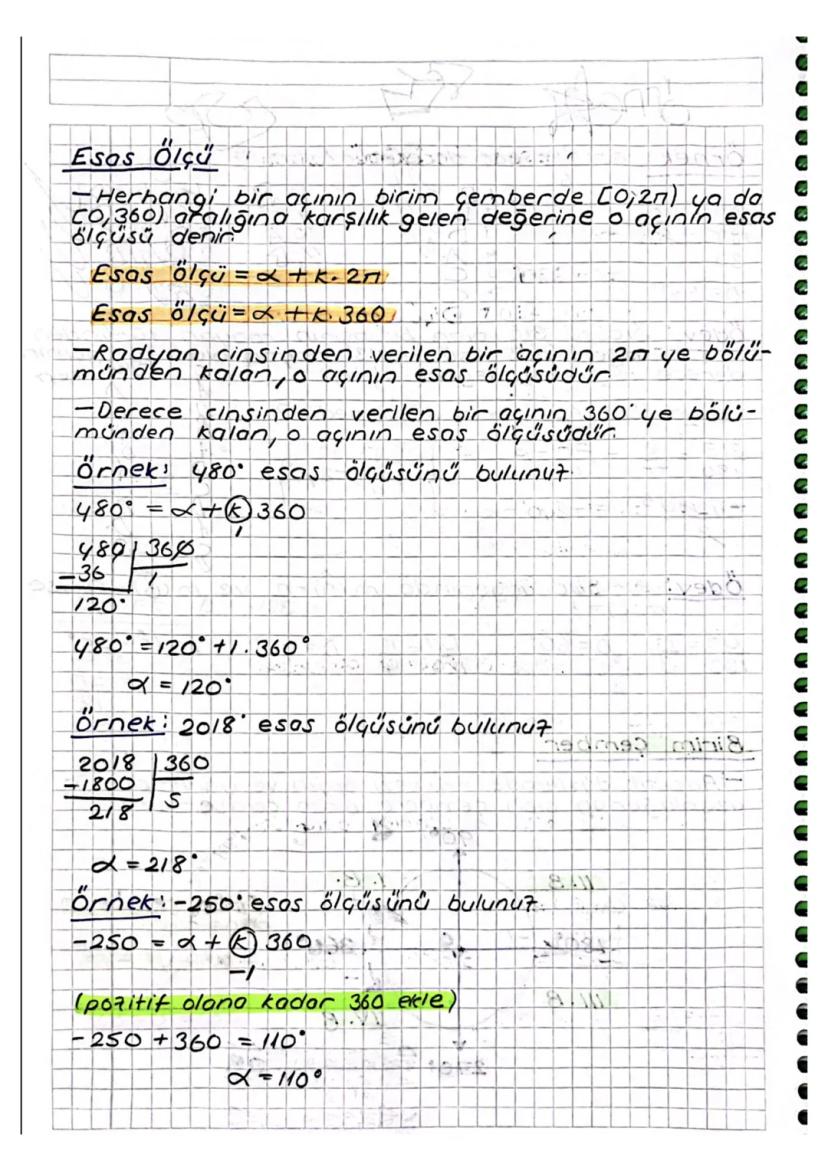 Esas Ölçü
-Herhangi bir açının birim çemberde [0,2π) ya da
[0,360) aralığına karşılık gelen değerine o açının esas
ölçüsü denir.
Esas ölçü = α + k. 2π
Esas ölçü = α + k. 360
-Radyan cinsinden verilen bir açının 2π ye bölü-
münden kalan, o açının esas ölçüsüdür
-Derece cinsinden verilen bir açının 360° ye bölü-
münden kalan, o açının esas ölçüsüdür.
Örnek: 480° esas ölçüsünü bulunuz
480° = α + k 360
1
480 | 360
-36 | 1
120°
480° = 120° + 1. 360°
α = 120°
Örnek: 2018° esas ölçüsünü bulunuz
2018 | 360
-1800 | 5
218
α = 218°
Örnek: -250° esas ölçüsünü bulunuz.
-250 = α + k 360
-1
(pozitif olana kadar 360 ekle)
-250 + 360 = 110°
α = 110°